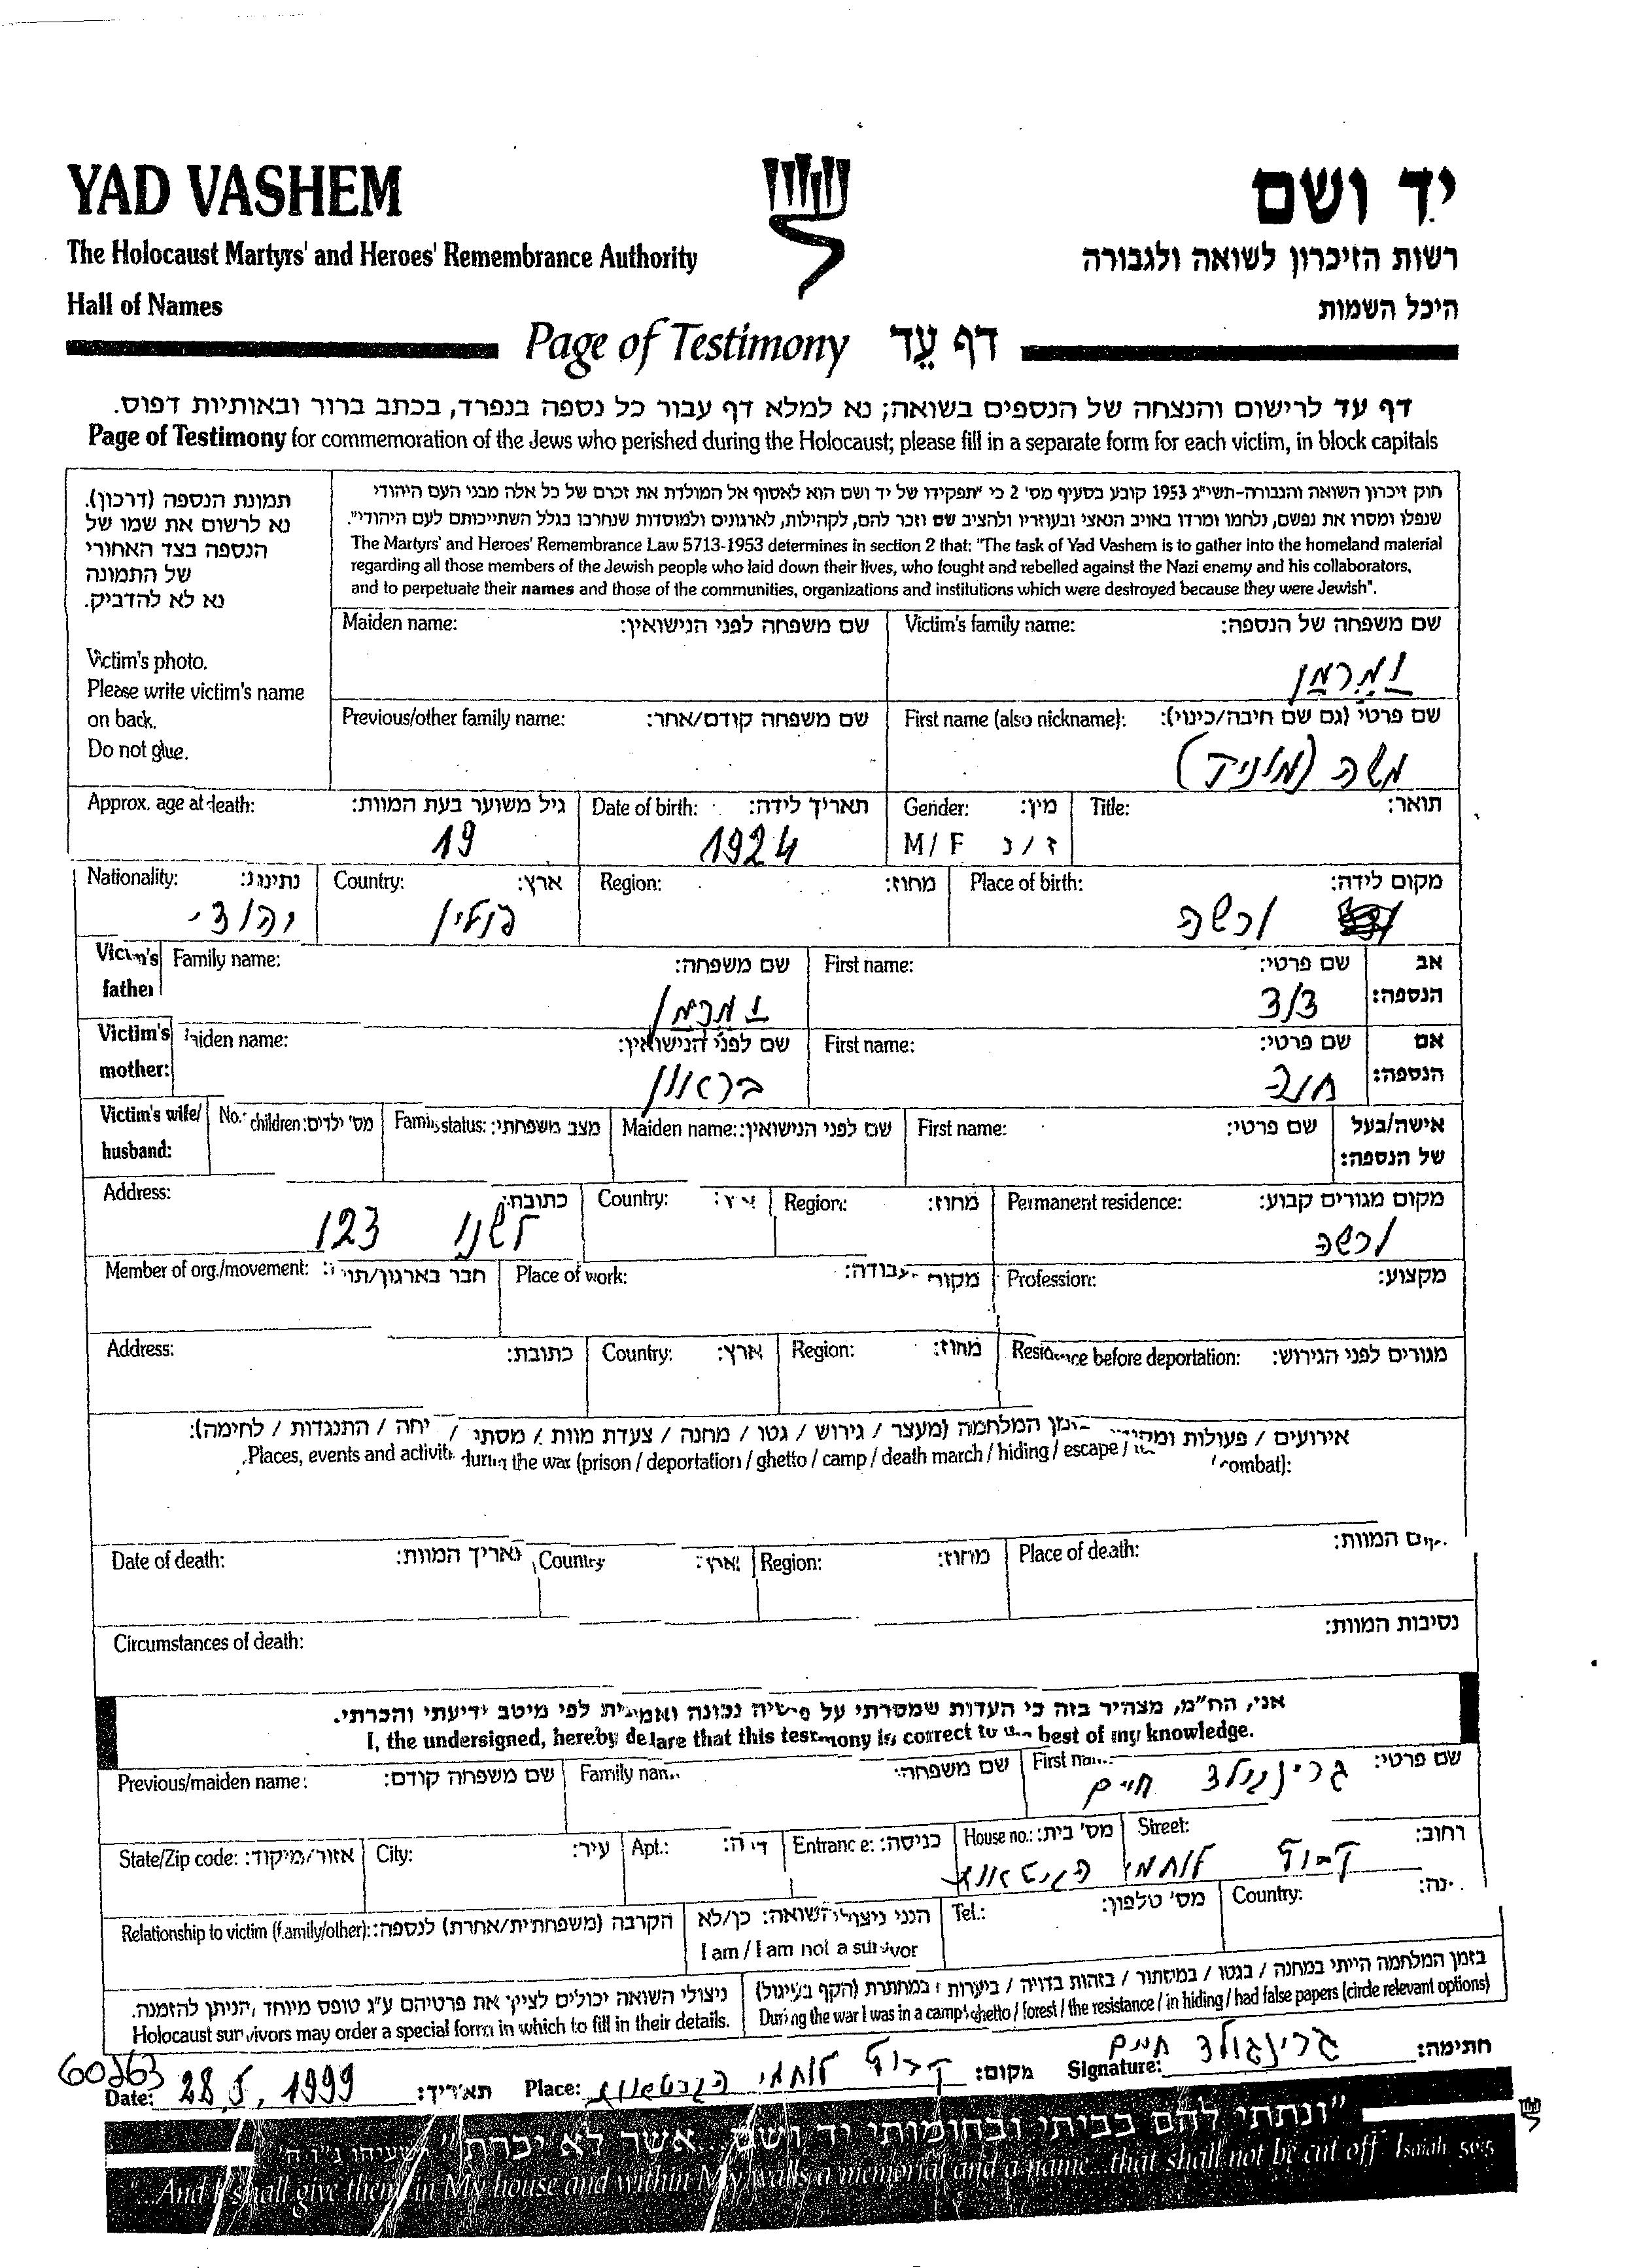 YAD VASHEM
יד ושם
The Holocaust Martyrs' and Heroes' Remembrance Authority
רשות הזיכרון לשואה ולגבורה
Hall of Names
היכל השמות
Page of Testimony דף עד
דף עד לרישום והנצחה של הנספים בשואה; נא למלא דף עבור כל נספה בנפרד, בכתב ברור ובאותיות דפוס.
Page of Testimony for commemoration of the Jews who perished during the Holocaust; please fill in a separate form for each victim, in block capitals
תמונת הנספה (דרכון).
נא לרשום את שמו של
הנספה בצד האחורי
של התמונה
נא לא להדביק.
Victim's photo.
Please write victim's name
on back.
Do not glue.
חוק זיכרון השואה והגבורה-תשי״ג 1953 קובע בסעיף מס' 2 כי "תפקידו של יד ושם הוא לאסוף אל המולדת את זכרם של כל אלה מבני העם היהודי
שנפלו ומסרו את נפשם, נלחמו ומרדו באויב הנאצי ובעוזריו ולהציב שם וזכר להם, לקהילות, לארגונים ולמוסדות שנחרבו בגלל השתייכותם לעם היהודי".
The Martyrs' and Heroes' Remembrance Law 5713-1953 determines in section 2 that: "The task of Yad Vashem is to gather into the homeland material
regarding all those members of the Jewish people who laid down their lives, who fought and rebelled against the Nazi enemy and his collaborators,
and to perpetuate their names and those of the communities, organizations and institutions which were destroyed because they were Jewish".
Maiden name: שם משפחה לפני הנישואין: Victim's family name: שם משפחה של הנספה:
Previous/other family name: שם משפחה קודם/אחר: First name (also nickname): שם פרטי (גם שם חיבה/כינוי):
משה
Approx. age at death: גיל משוער בעת המוות: Date of birth: תאריך לידה: Gender: מין: Title: תואר:
19 1924 M / F ז / נ
Nationality: נתינות: Country: ארץ: Region: מחוז: Place of birth: מקום לידה:
יהודי פולין ורשה
Victim's father Family name: שם משפחה: First name: שם פרטי: אב הנספה:
דוד
Victim's mother: Maiden name: שם לפני הנישואין: First name: שם פרטי: אם הנספה:
בראון חוה
Victim's wife/ husband: No. children: מס' ילדים: Family status: מצב משפחתי: Maiden name: שם לפני הנישואין: First name: שם פרטי: אישה/בעל של הנספה:
Address: כתובת: Country: Region: מחוז: Permanent residence: מקום מגורים קבוע:
לשנו 123 ורשה
Member of org./movement: חבר בארגון/ Place of work: מקום עבודה: Profession: מקצוע:
Address: כתובת: Country: ארץ: Region: מחוז: Residence before deportation: מגורים לפני הגירוש:
אירועים / פעולות המלחמה (מעצר / גירוש / גטו / מחנה / צעדת מוות / / התנגדות / לחימה):
Places, events and activities during the war (prison / deportation / ghetto / camp / death march / hiding / escape / combat):
Date of death: תאריך המוות: Country ארץ: Region: מחוז: Place of death: מקום המוות:
Circumstances of death: נסיבות המוות:
אני, הח״מ, מצהיר בזה כי העדות שמסרתי על פרטיה נכונה ואמיתית לפי מיטב ידיעתי והכרתי.
I, the undersigned, hereby declare that this testimony is correct to the best of my knowledge.
Previous/maiden name: שם משפחה קודם: Family name שם משפחה: First name: שם פרטי:
גרינגולד חיים
State/Zip code: אזור/מיקוד: City: עיר: Apt.: דירה: Entrance: כניסה: House no.: מס' בית: Street: רחוב:
קבוץ לוחמי הגיטאות
Relationship to victim (family/other): הקרבה (משפחתית/אחרת) לנספה: הנני ניצול השואה: כן/לא Tel.: מס' טלפון: Country:
I am / I am not a survivor
בזמן המלחמה הייתי במחנה / בגטו / במסתור / בזהות בדויה / ביערות / במחתרת (הקף בעיגול)
During the war I was in a camp / ghetto / forest / the resistance / in hiding / had false papers (circle relevant options)
ניצולי השואה יכולים לציין את פרטיהם ע״ג טופס מיוחד, הניתן להזמנה.
Holocaust survivors may order a special form in which to fill in their details.
Date: 28.5.1999 תאריך: Place: קבוץ לוחמי הגיטאות מקום: Signature: גרינגולד חיים חתימה:
"ונתתי להם בביתי ובחומותי יד ושם... אשר לא יכרת" ישעיהו נ״ו ה'
"...And I shall give them in My house and within My walls a memorial and a name...that shall not be cut off" Isaiah 56:5